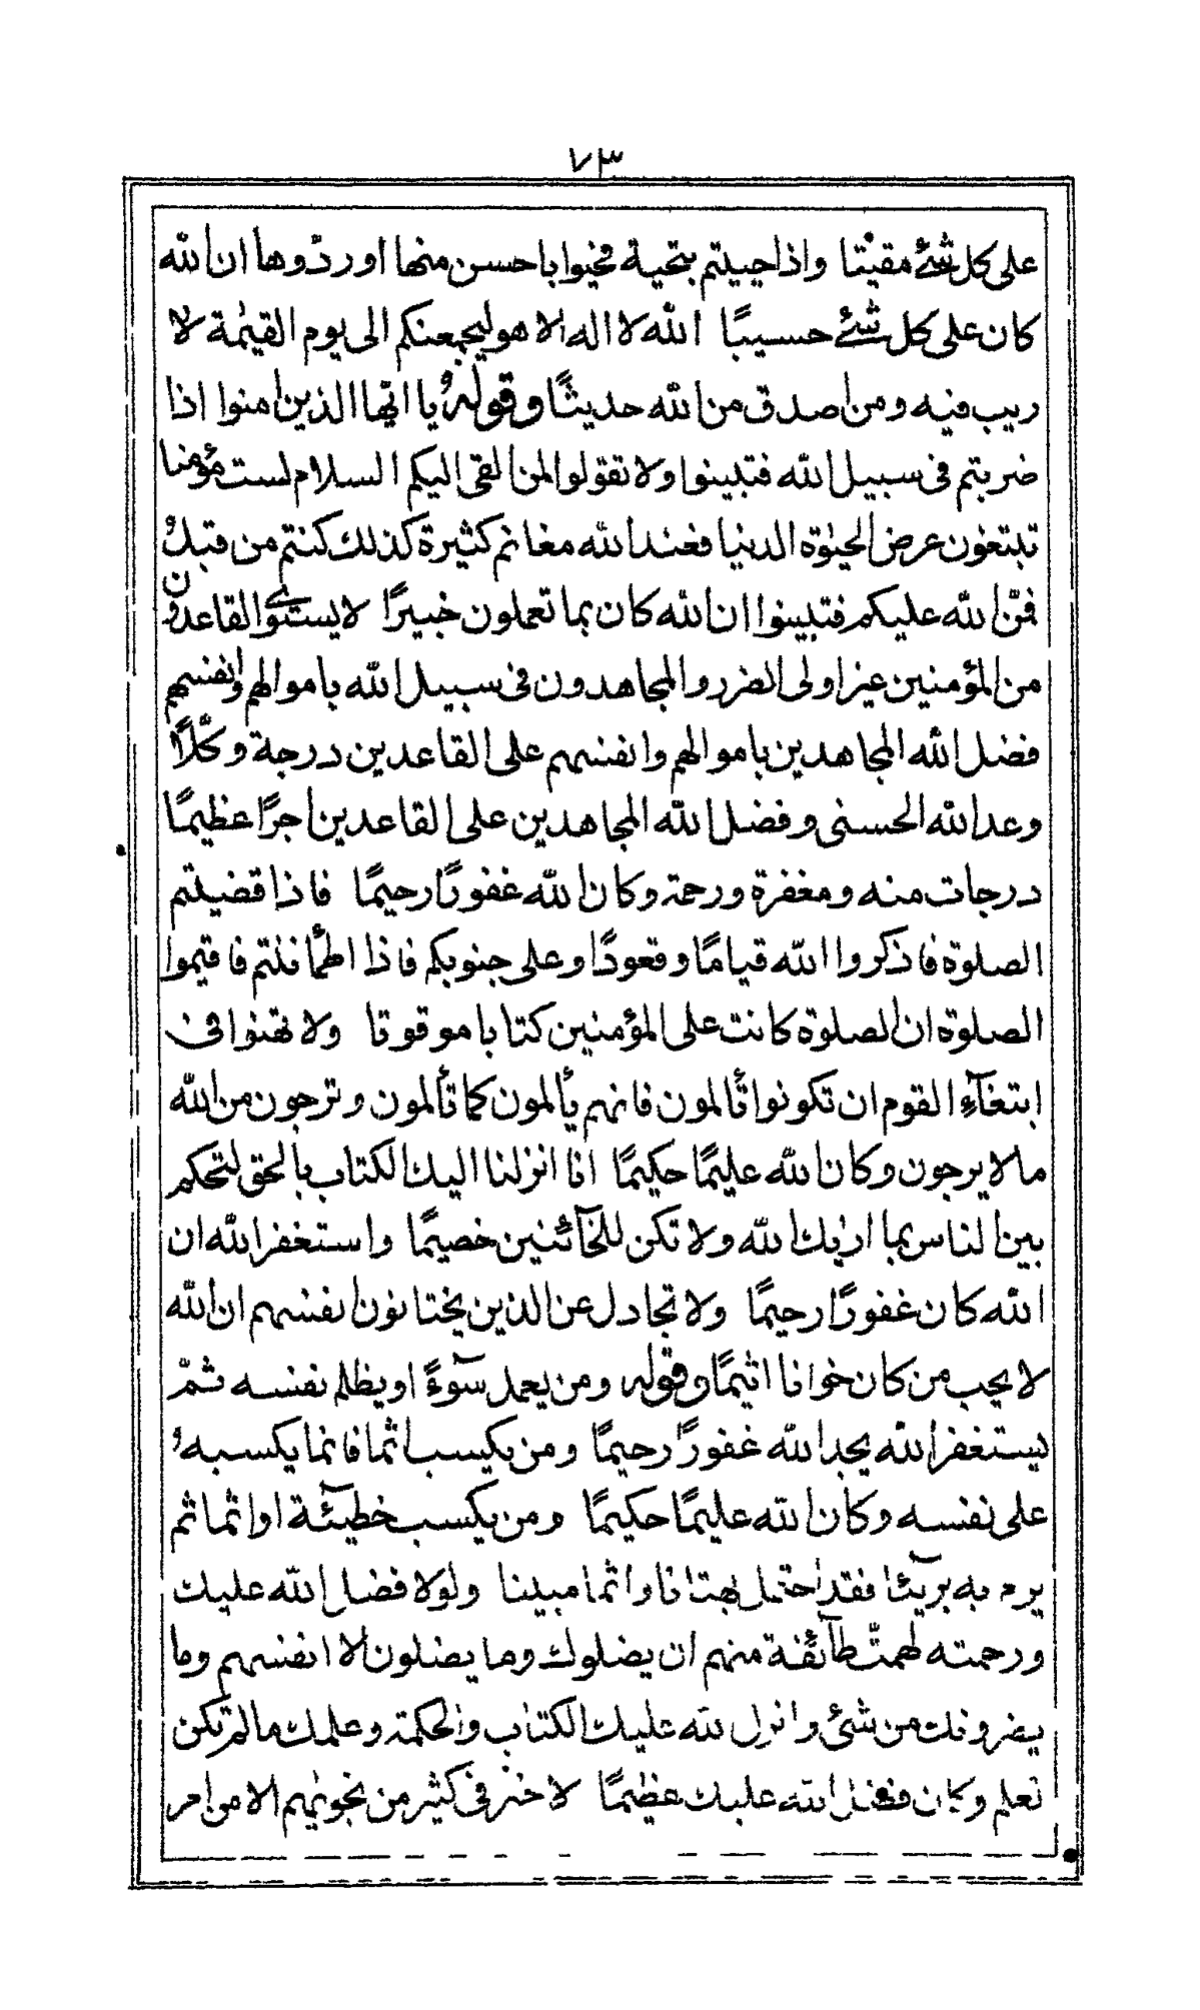 ٧٣
على كل شئ مقيتا واذا حييتم بتحية فحيوا باحسن منها او ردّوها ان الله
كان على كل شئ حسيبًا الله لا اله الا هو ليجمعنكم الى يوم القيٰمة لا
ريب فيه ومن اصدق من الله حديثًا وقوله يا ايّها الذين امنوا اذا
ضربتم فى سبيل الله فتبينوا ولا تقولوا لمن القى اليكم السلام لست مؤمنا
تبتغون عرض الحيٰوة الدنيا فعند الله مغانم كثيرة كذلك كنتم من قبل
فمنّ الله عليكم فتبينوا ان الله كان بما تعملون خبيرًا لا يستوى القاعدون
من المؤمنين غير اولى الضرر والمجاهدون فى سبيل الله باموالهم وانفسهم
فضل الله المجاهدين باموالهم وانفسهم على القاعدين درجة وكلًّا
وعد الله الحسنى وفضل الله المجاهدين على القاعدين اجرًا عظيمًا
درجات منه ومغفرة ورحمة وكان الله غفورًا رحيمًا فاذا قضيتم
الصلوة فاذكروا الله قيامًا وقعودًا وعلى جنوبكم فاذا اطمأننتم فاقيموا
الصلوة ان الصلوة كانت على المؤمنين كتابا موقوتا ولا تهنوا فى
ابتغآء القوم ان تكونوا تألمون فانهم يألمون كما تألمون وترجون من الله
ما لا يرجون وكان الله عليمًا حكيمًا انا انزلنا اليك الكتاب بالحق لتحكم
بين الناس بما اريٰك الله ولا تكن للخآئنين خصيمًا واستغفر الله ان
الله كان غفورًا رحيمًا ولا تجادل عن الذين يختانون انفسهم ان الله
لا يحب من كان خوانا اثيمًا وقوله ومن يعمل سوٓءًا او يظلم نفسه ثمّ
يستغفر الله يجد الله غفورًا رحيمًا ومن يكسب اثما فانما يكسبه
على نفسه وكان الله عليمًا حكيمًا ومن يكسب خطيٓئة او اثما ثم
يرم به بريٓئا فقد احتمل بهتانا واثما مبينا ولولا فضل الله عليك
ورحمته لهمتّ طآئفة منهم ان يضلوك وما يضلون الا انفسهم وما
يضرونك من شئ وانزل الله عليك الكتاب والحكمة وعلمك ما لم تكن
تعلم وكان فضل الله عليك عظيمًا لا خير فى كثير من نجويٰهم الا من امر